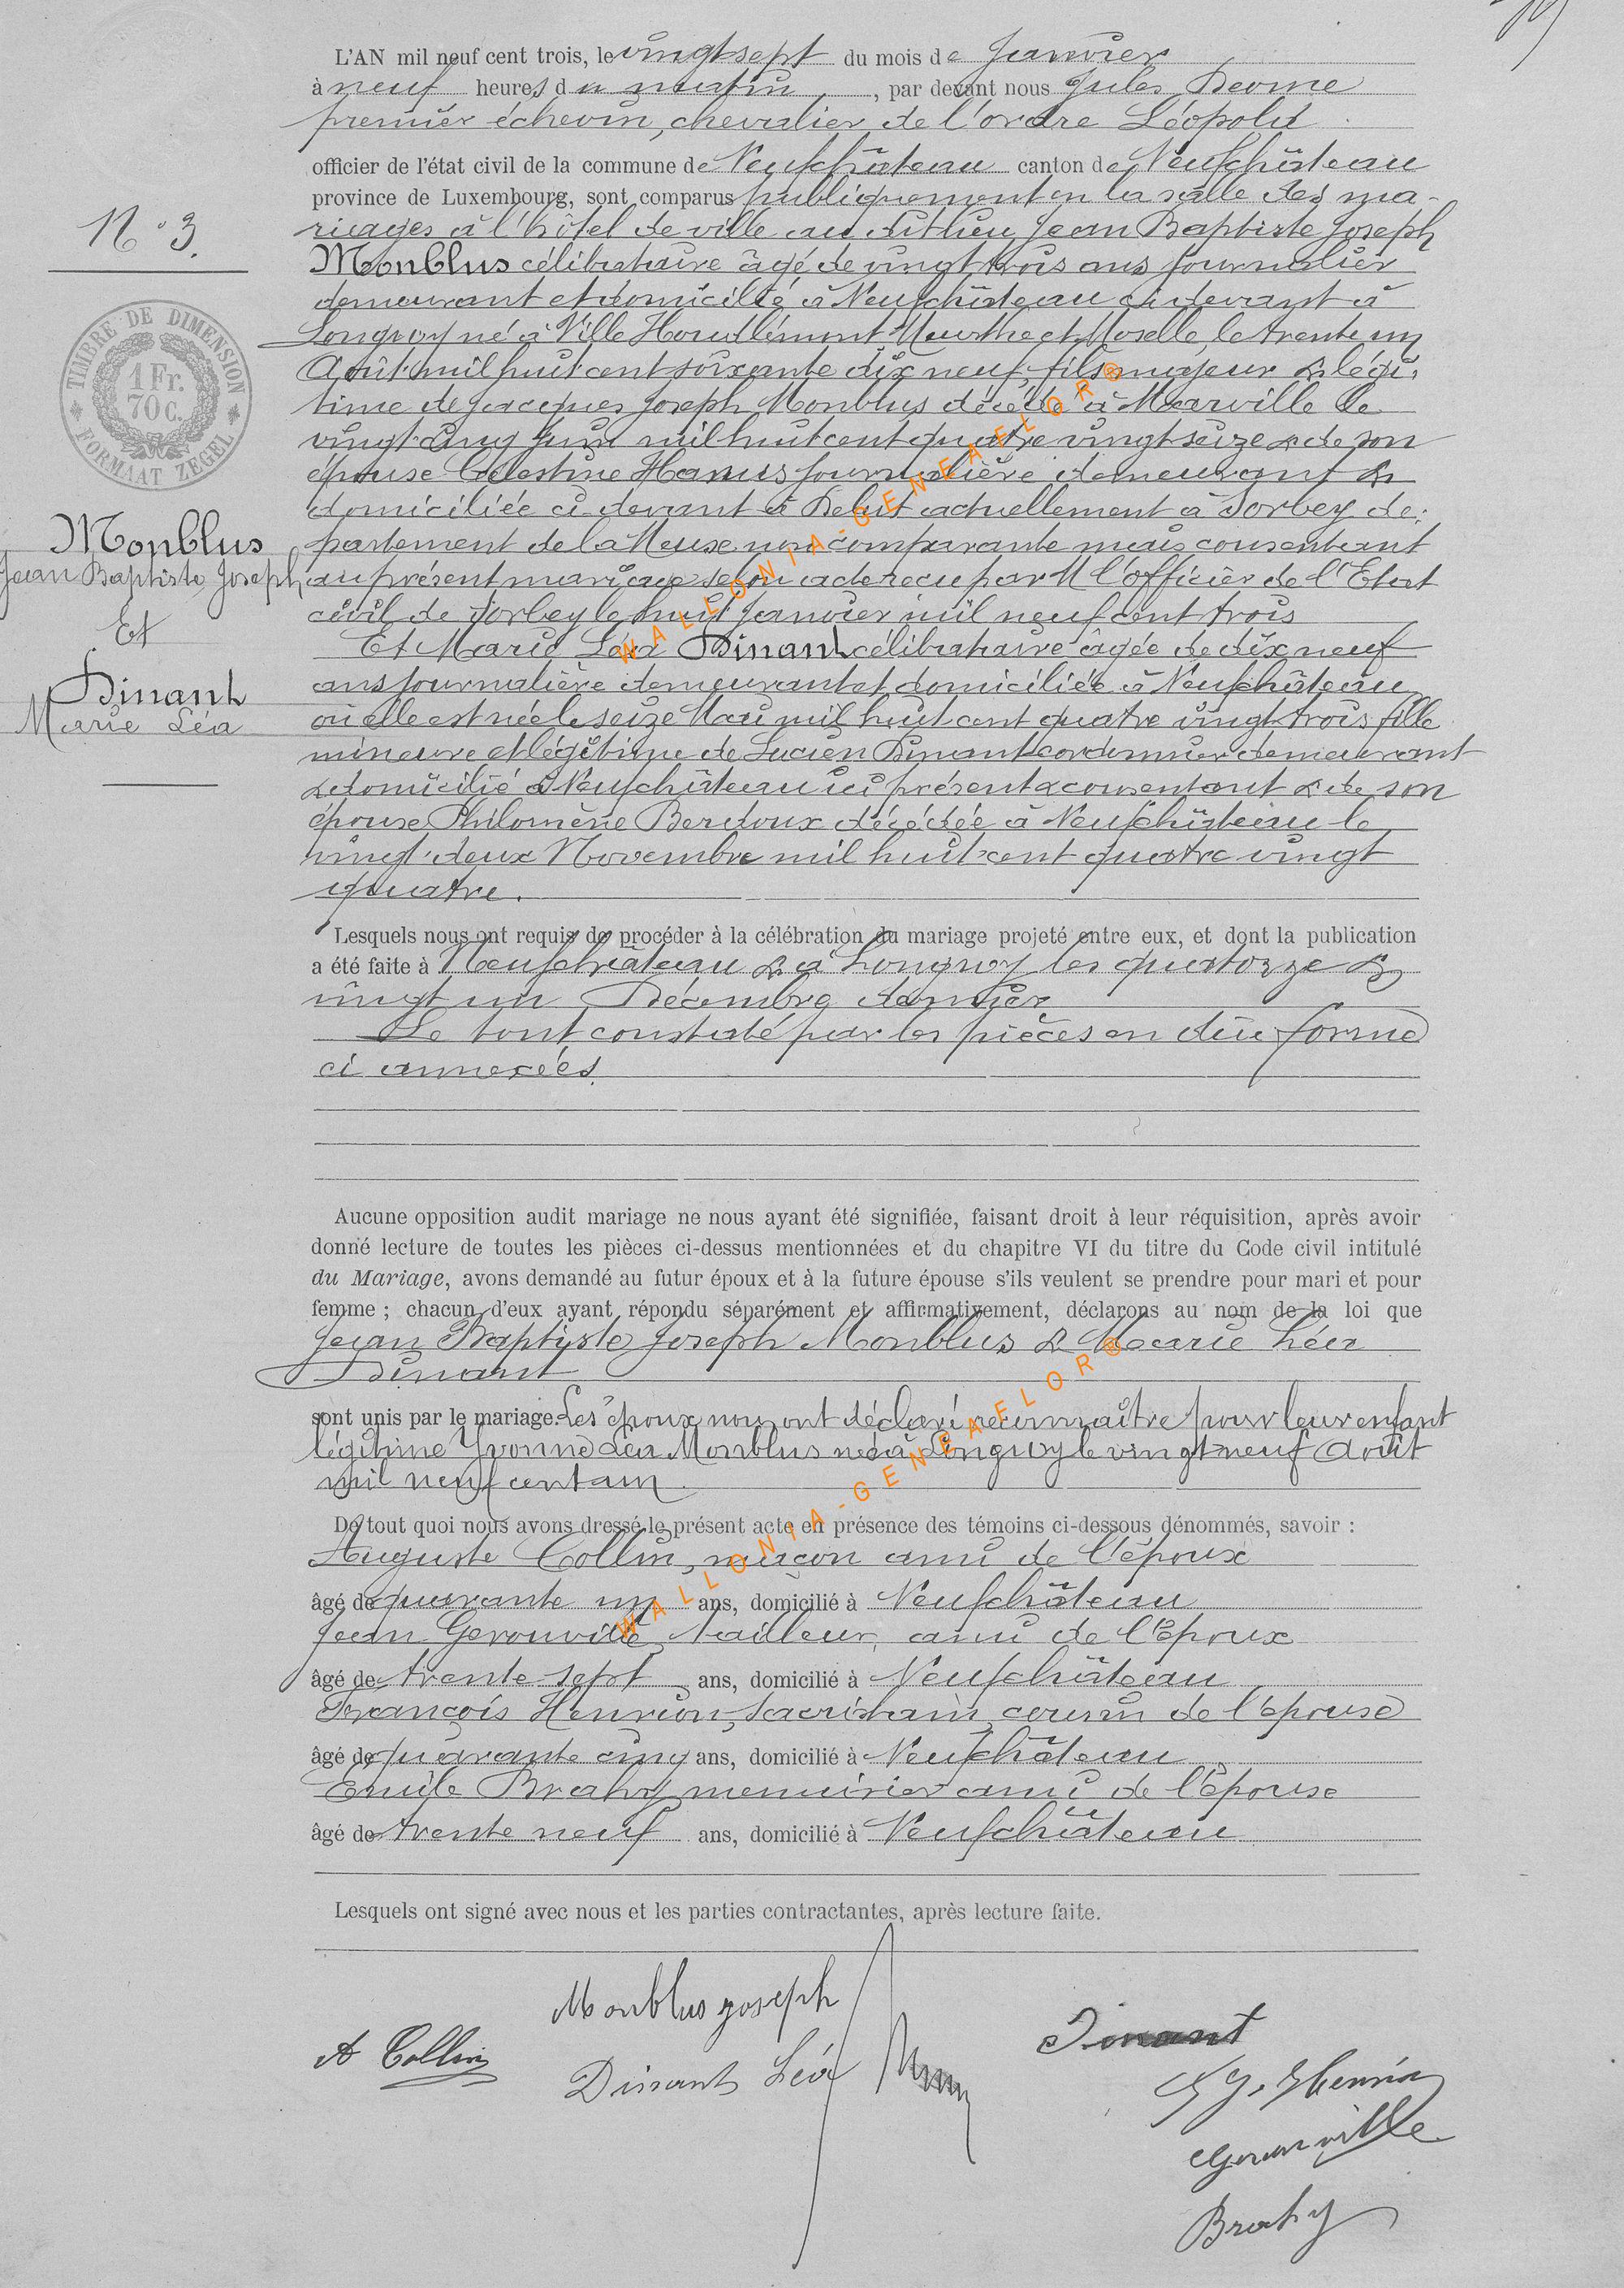 L'AN mil neuf cent trois, le vingt sept du mois de Janvier
à neuf heures du matin, par devant nous Jules Deome
premier échevin, chevalier de l'ordre Léopold
officier de l'état civil de la commune de Neufchâteau canton de Neufchâteau
province de Luxembourg, sont comparus publiquement en la salle des ma-
riages à l'hôtel de ville au dit lieu Jean Baptiste Joseph
Monblus célibataire âgé de vingt trois ans journalier
demeurant et domicilié à Neufchâteau ci devant à
Longuyon né à Ville Houdlémont Meurthe et Moselle, le trente un
Août mil huit cent soixante dix neuf, fils majeur & légi-
time de Jacques Joseph Monblus décédé à Marville le
vingt cinq Juin mil huit cent quatre vingt seize & de son
épouse Célestine Hanus journalière demeurant &
domiciliée ci devant à Delut actuellement à Sorbey dé-
partement de la Meuse non comparante mais consentant
au présent mariage selon acte reçu par M l'officier de l'Etat
civil de Sorbey le huit Janvier mil neuf cent trois
Et Marie Léa Dinant célibataire âgée de dix neuf
ans journalière demeurant et domiciliée à Neufchâteau
où elle est née le seize Mai mil huit cent quatre vingt trois fille
mineure et légitime de Lucien Dinant cordonnier demeurant
& domicilié à Neufchâteau ici présent & consentant & de son
épouse Philomène Berdoux décédée à Neufchâteau le
vingt deux Novembre mil huit cent quatre vingt
quatre.
N° 3.
TIMBRE DE DIMENSION
1 Fr.
70 C.
FORMAAT ZEGEL
Monblus
Jean Baptiste Joseph
Et
Dinant
Marie Léa
Lesquels nous ont requis de procéder à la célébration du mariage projeté entre eux, et dont la publication
a été faite à Neufchâteau & à Longuyon les quatorze &
vingt un Décembre dernier
Le tout constaté par les pièces en due forme
ci annexées.
Aucune opposition audit mariage ne nous ayant été signifiée, faisant droit à leur réquisition, après avoir
donné lecture de toutes les pièces ci-dessus mentionnées et du chapitre VI du titre du Code civil intitulé
du Mariage, avons demandé au futur époux et à la future épouse s'ils veulent se prendre pour mari et pour
femme ; chacun d'eux ayant répondu séparément et affirmativement, déclarons au nom de la loi que
Jean Baptiste Joseph Monblus & Marie Léa
Dinant
sont unis par le mariage. Les époux nous ont déclaré reconnaître pour leur enfant
légitime Yvonne Léa Monblus née à Longuyon le vingt neuf Août
mil neuf cent un
De tout quoi nous avons dressé le présent acte en présence des témoins ci-dessous dénommés, savoir :
Auguste Collin, maçon ami de l'époux
âgé de quarante un ans, domicilié à Neufchâteau
Jean Gerouville tailleur, ami de l'époux
âgé de trente sept ans, domicilié à Neufchâteau
François Henrion, sacristain, cousin de l'épouse
âgé de quarante cinq ans, domicilié à Neufchâteau
Emile Brahy menuisier ami de l'épouse
âgé de trente neuf ans, domicilié à Neufchâteau
Lesquels ont signé avec nous et les parties contractantes, après lecture faite.
Monblus joseph
A Collin
Dinant Léa
Dinant
Henrion
Gerouville
Brahy
WALLONIA-GENEAFLOR®
WALLONIA-GENEAFLOR®